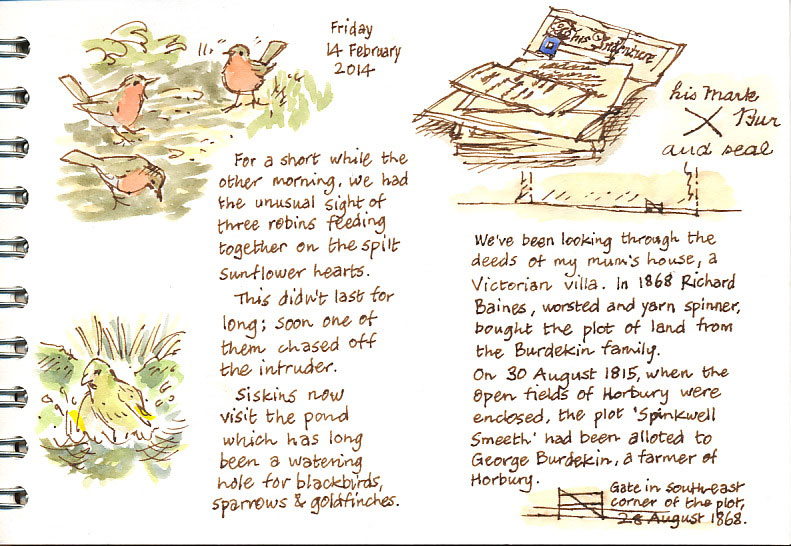 Friday
14 February
2014
For a short while the
other morning, we had
the unusual sight of
three robins feeding
together on the spilt
sunflower hearts.
This didn't last for
long; soon one of
them chased off
the intruder.
Siskins now
visit the pond
which has long
been a watering
hole for blackbirds,
sparrows & goldfinches.
This Indenture
his Mark
X Bur
and seal
We've been looking through the
deeds of my mum's house, a
Victorian villa. In 1868 Richard
Baines, worsted and yarn spinner,
bought the plot of land from
the Burdekin family.
On 30 August 1815, when the
open fields of Horbury were
enclosed, the plot 'Spinkwell
Smeeth' had been alloted to
George Burdekin, a farmer of
Horbury.
Gate in south-east
corner of the plot,
28 August 1868.